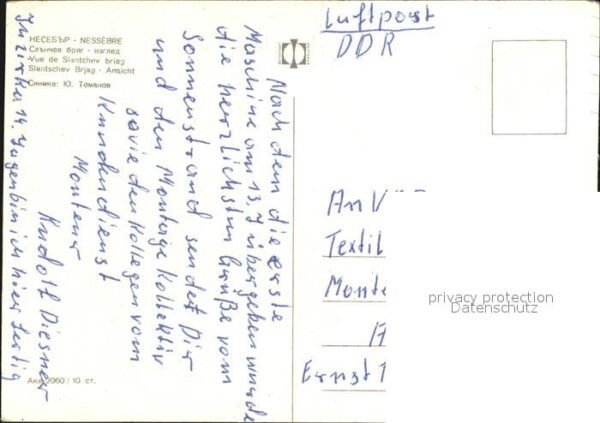 НЕСЕБЪР - NESSÈBRE
Слънчев бряг - изглед
Vue de Slantchev briag
Slantschev Brjag - Ansicht
Снимка: Ю. Томанов
Nach dem die erste
Maschine am 13.7 übergeben wurde
die herzlichsten Grüße vom
Sonnenstrand sendet Dir
und den Montage Kollektiv
sowie den Kollegen vom
Kundendienst
Monteur
Rudolf Diesner
In zirka 14. Tagen bin ich hier fertig
Акл 2060 / 10 ст.
Luftpost
DDR
An
Textil
Monte
Ernst
privacy protection
Datenschutz